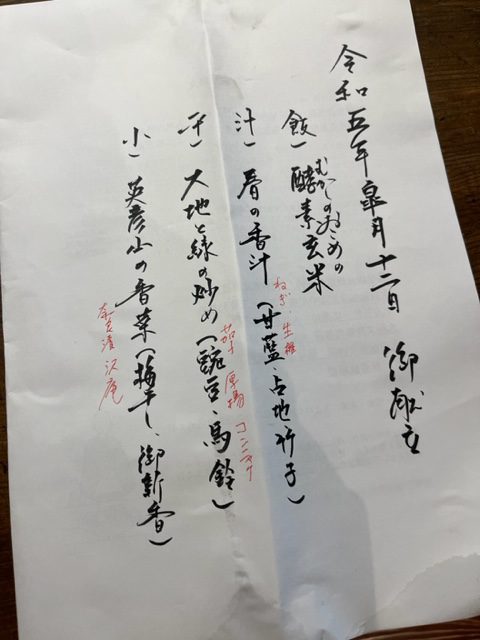 令和五年皐月十二日 御献立
飯一 酵素玄米
むかしのおこめの
汁一 春の香汁(甘藍、占地、竹子)
ねぎ 生椎
平一 大地と緑の炒め(豌豆、馬鈴)
茄子 厚揚 コンニャク
小一 英彦山の香菜(梅干し、御新香)
奈良漬 沢庵